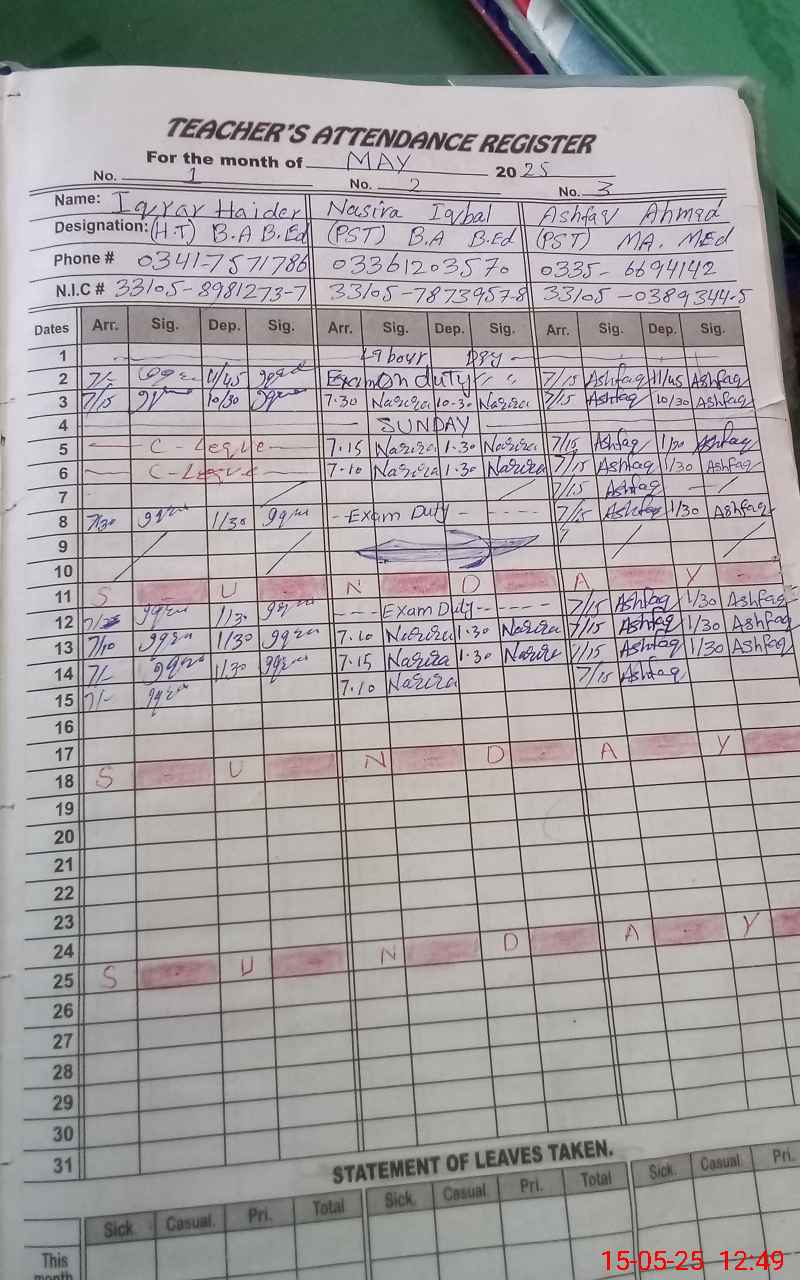 TEACHER'S ATTENDANCE REGISTER
For the month of MAY 2025
No. 1 No. 2 No. 3
Name: Iqrar Haider Nasira Iqbal Ashfaq Ahmad
Designation: (H.T) B.A B.Ed (PST) B.A B.Ed (PST) MA. MEd
Phone # 0341-7571786 03361203570 0335-6694142
N.I.C # 33105-8981273-7 33105-7873957-8 33105-0389344-5
Dates Arr. Sig. Dep. Sig. Arr. Sig. Dep. Sig. Arr. Sig. Dep. Sig.
1 Labour Day
2 7/- 11/45 Exam On duty 7/15 Ashfaq 11/45 Ashfaq
3 7/15 10/30 7.30 Nasira 10.30 Nasira 7/15 Ashfaq 10/30 Ashfaq
4 SUNDAY
5 C-Leave 7.15 Nasira 1.30 Nasira 7/15 Ashfaq 1/30 Ashfaq
6 C-Leave 7.10 Nasira 1.30 Nasira 7/15 Ashfaq 1/30 Ashfaq
7 7/15 Ashfaq
8 7/30 1/30 Exam Duty 7/15 Ashfaq 1/30 Ashfaq
9
10
11 S U N D A Y
12 1/30 Exam Duty 7/15 Ashfaq 1/30 Ashfaq
13 7/10 1/30 7.10 Nasira 1.30 Nasira 7/15 Ashfaq 1/30 Ashfaq
14 7/- 1/30 7.15 Nasira 1.30 Nasira 7/15 Ashfaq 1/30 Ashfaq
15 7/- 7.10 Nasira 7/15 Ashfaq
16
17
18 S U N D A Y
19
20
21
22
23
24
25 S U N D A Y
26
27
28
29
30
31
STATEMENT OF LEAVES TAKEN.
Sick. Casual. Pri. Total Sick. Casual. Pri. Total Sick. Casual. Pri.
This
month
15-05-25 12:49